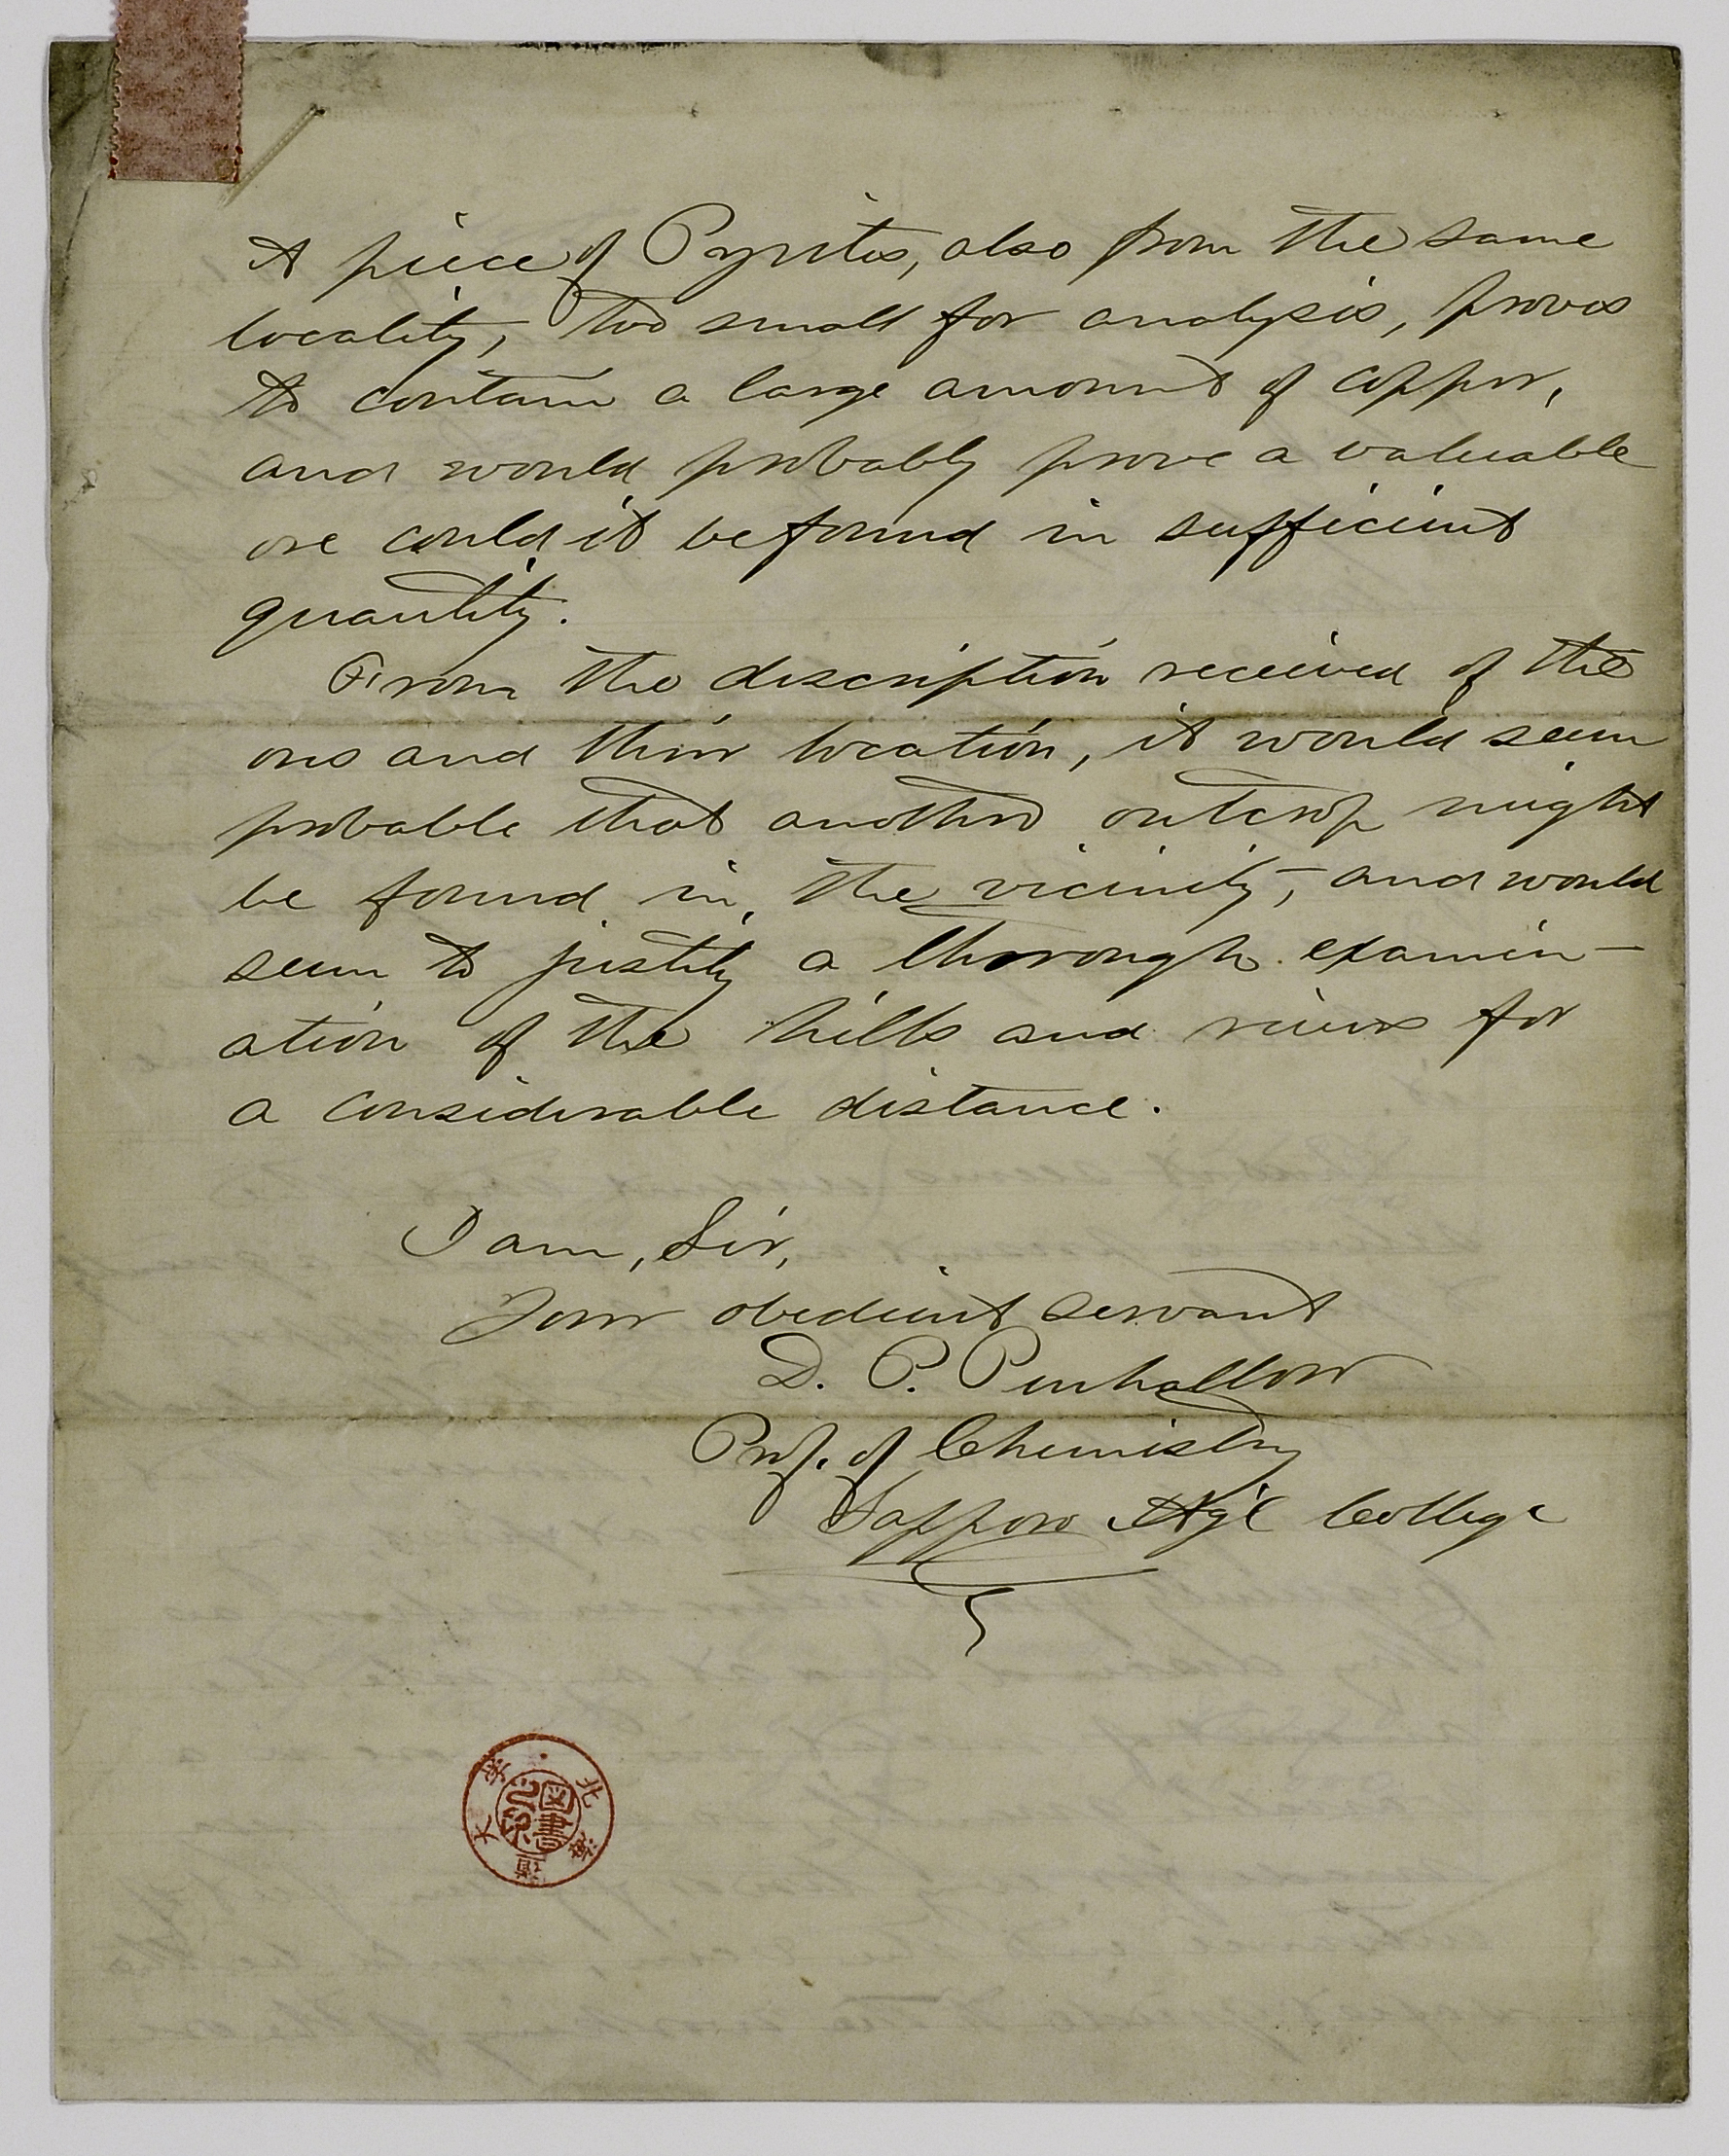 A piece of Pyrites, also from the same
locality, too small for analysis, proves
to contain a large amount of copper,
and would probably prove a valuable
ore could it be found in sufficient
quantity.
From the description received of the
ores and their location, it would seem
probable that another outcrop might
be found in the vicinity, and would
seem to justify a thorough examin-
ation of the hills and rivers for
a considerable distance.
I am, Sir,
Your obedient servant
D. P. Penhallow
Prof. of Chemistry
Sapporo Ag'l College
北海道大學
図書之印